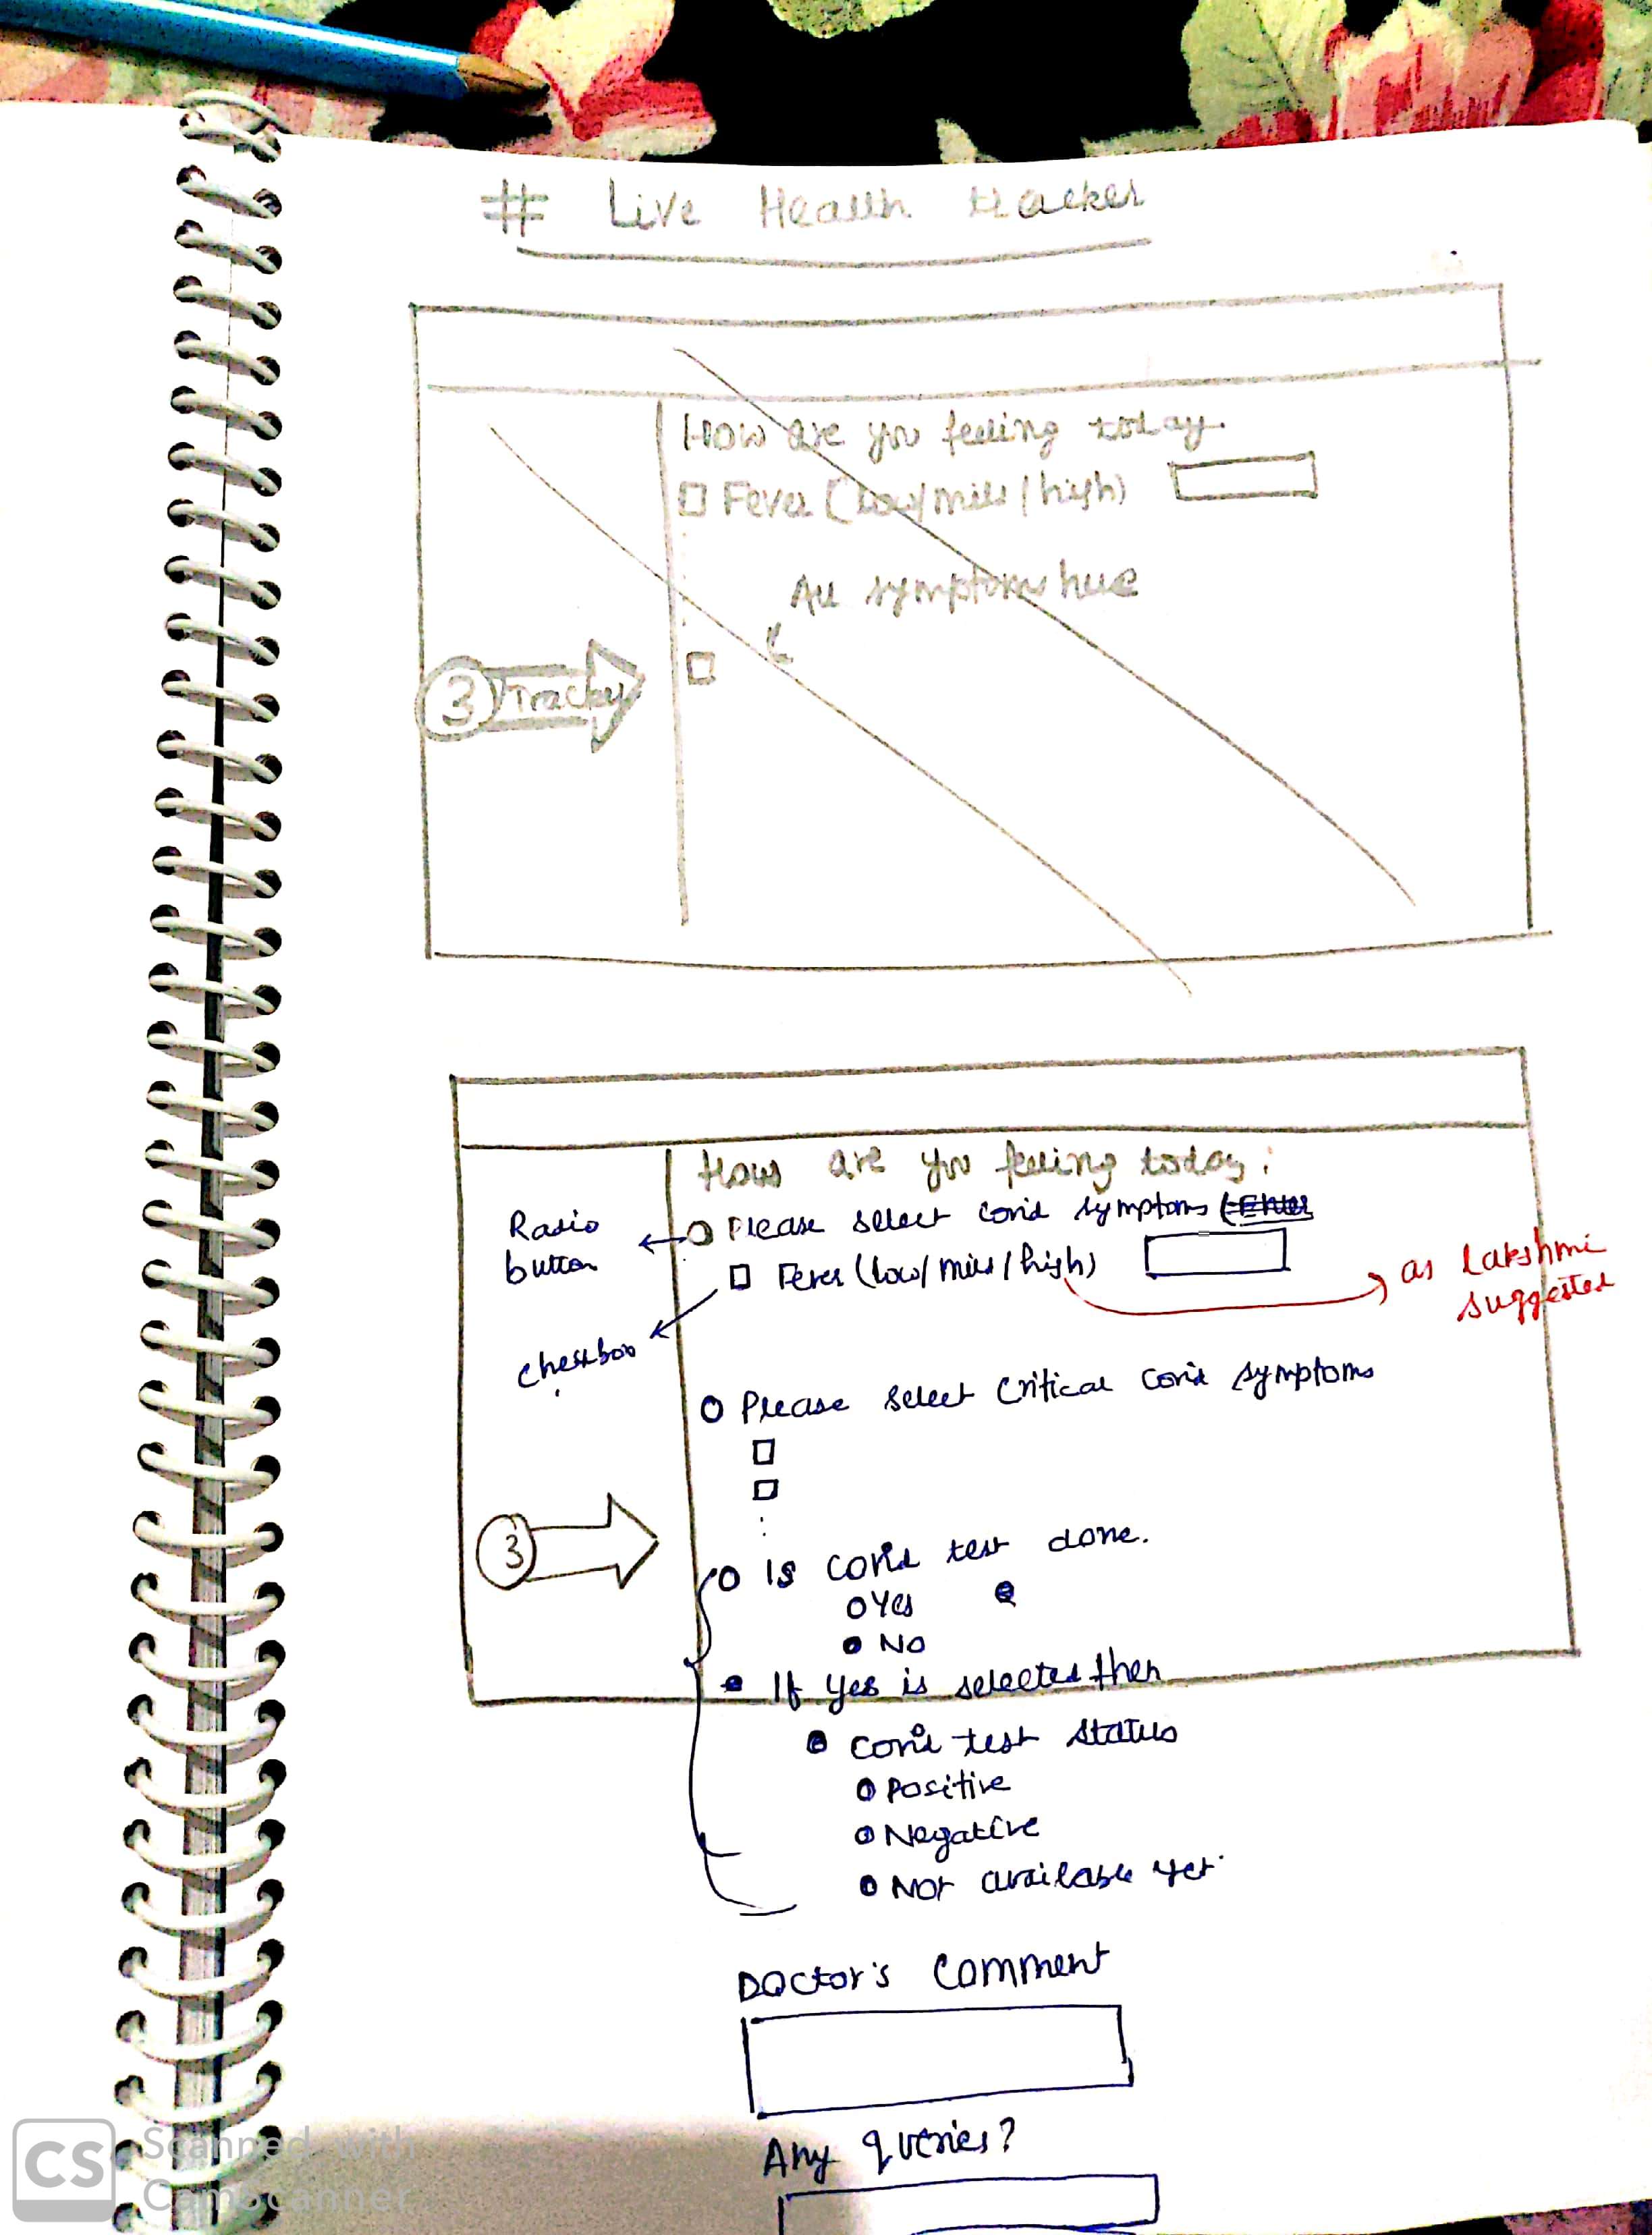 # Live Health tracker
How are you feeling today.
Fever (low/mild/high)
All symptoms here
3 Tracky
How are you feeling today:
Radio button
Please select covid symptoms
Fever (low/mild/high)
as Lakshmi suggested
checkbox
Please select critical covid symptoms
3
Is covid test done.
Yes
No
If yes is selected then
covid test status
Positive
Negative
Not available yet.
Doctor's comment
Any queries?
CS Scanned with
CamScanner